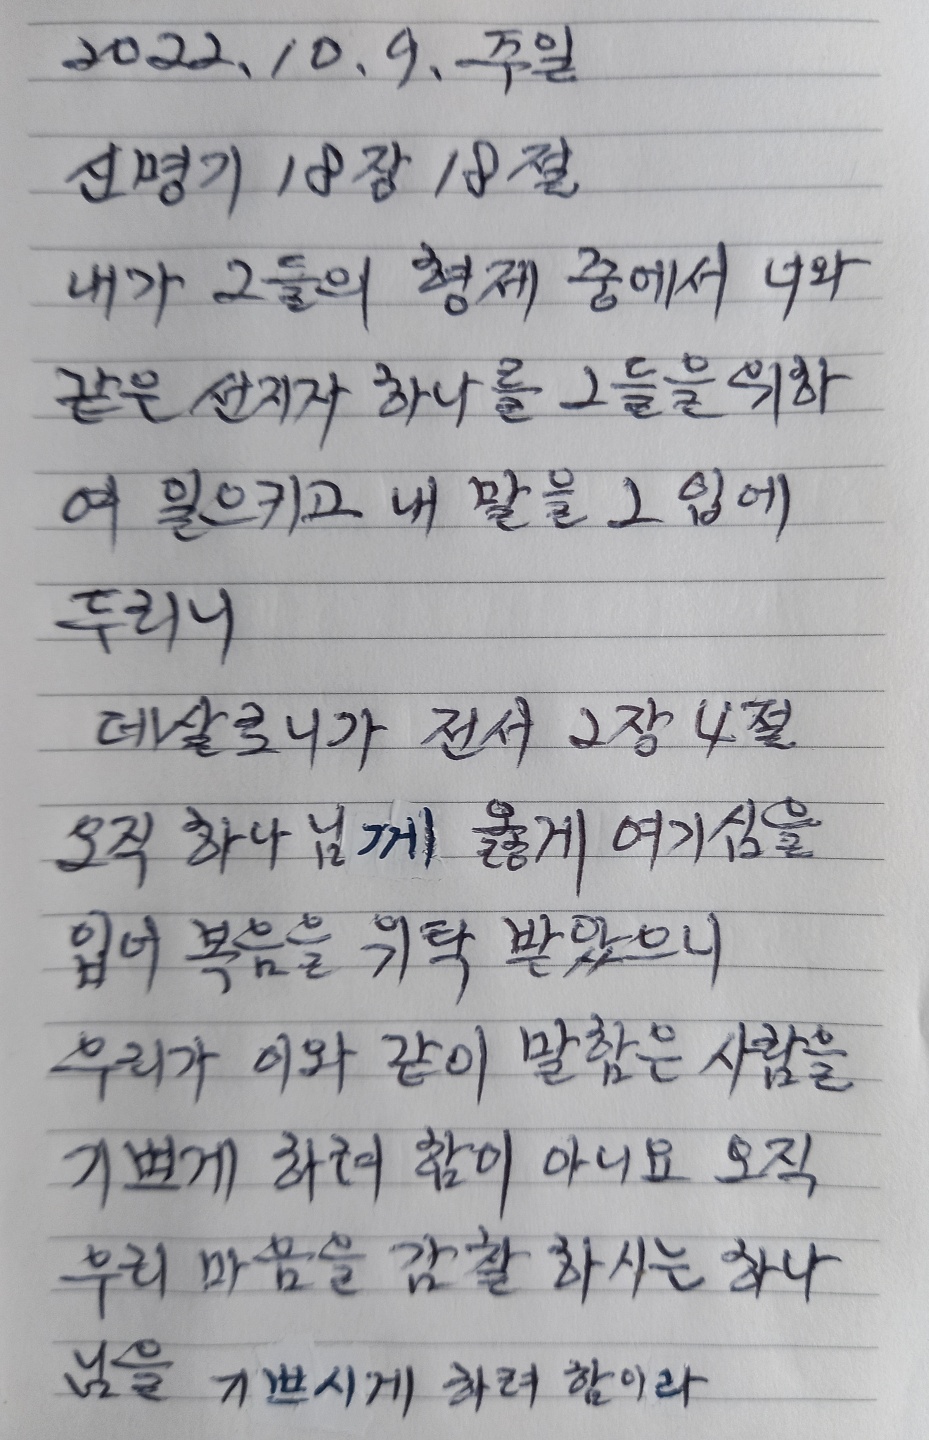 2022. 10. 9. 주일
신명기 18장 18절
내가 그들의 형제 중에서 너와
같은 선지자 하나를 그들을 위하
여 일으키고 내 말을 그 입에
두리니
데살로니가 전서 2장 4절
오직 하나님께 옳게 여기심을
입어 복음을 위탁 받았으니
우리가 이와 같이 말함은 사람을
기쁘게 하려 함이 아니요 오직
우리 마음을 감찰 하시는 하나
님을 기쁘시게 하려 함이라